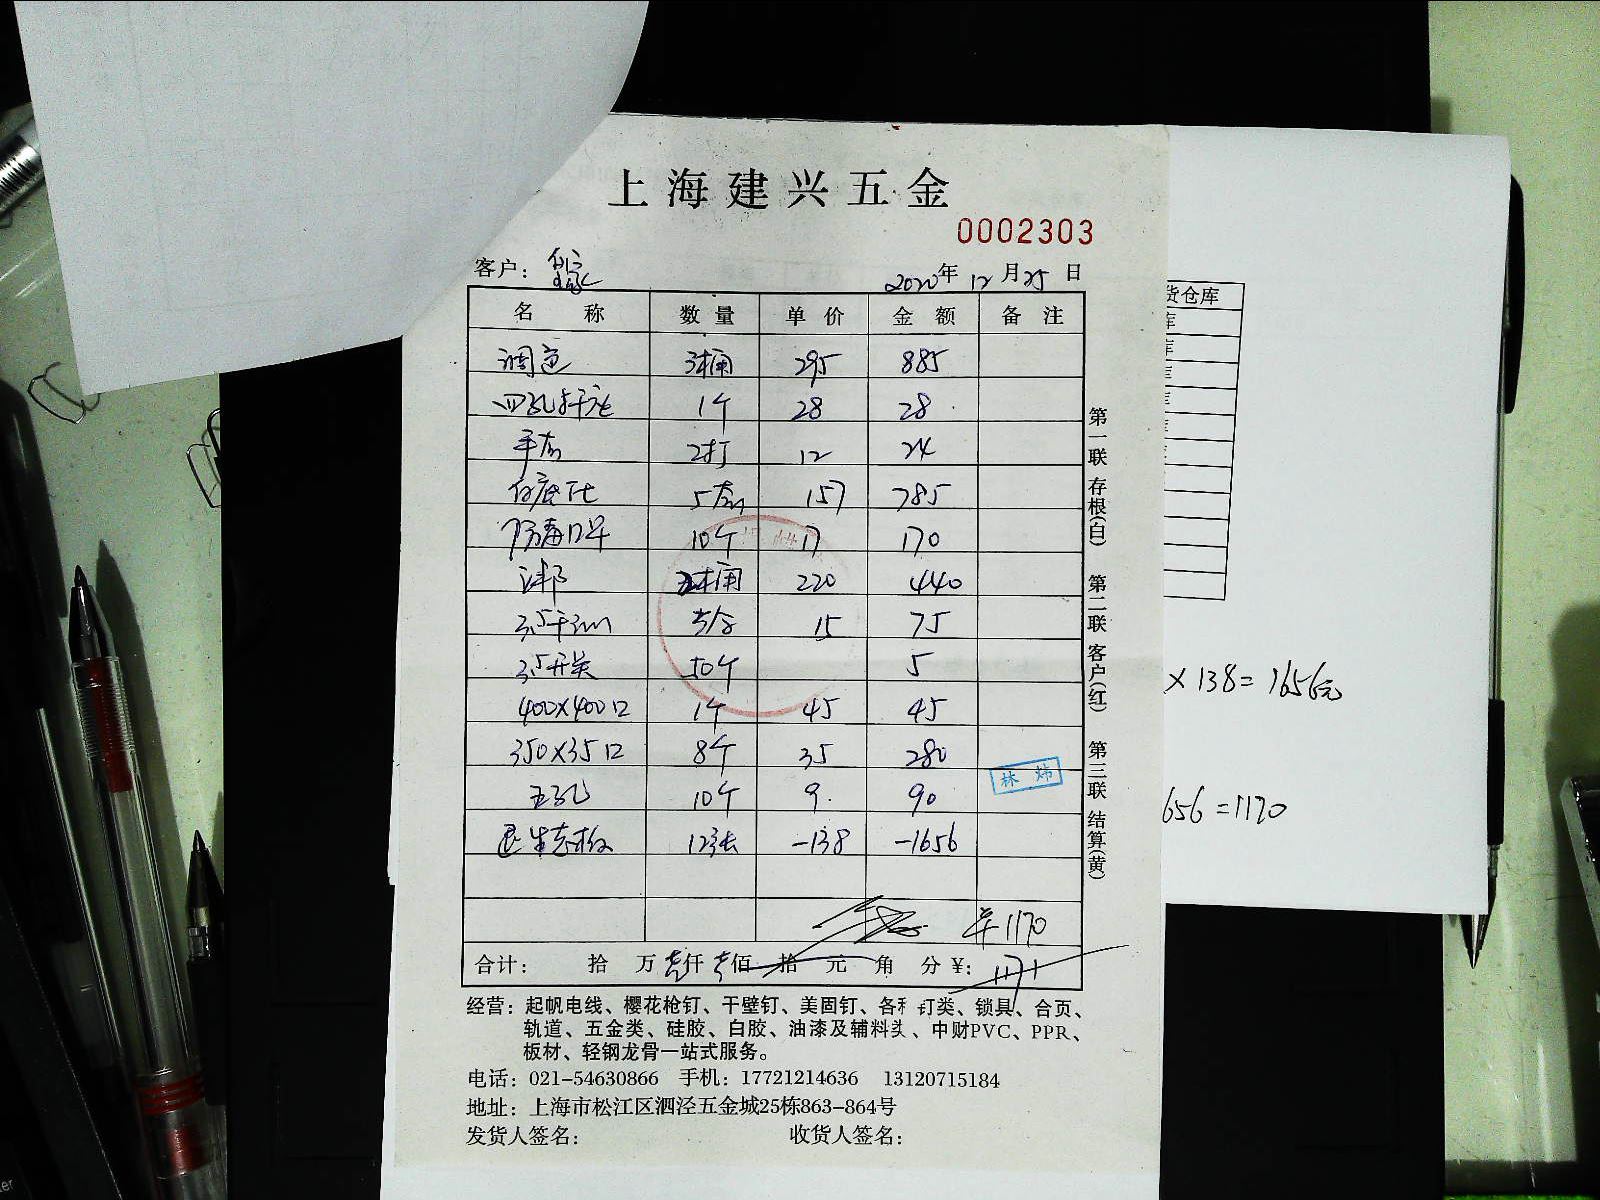 上海建兴五金
0002303
客户：
2020年12月25日
名称 数量 单价 金额 备注
调色 3桶 295 885
四孔 1个 28 28
手套 2打 12 24
5 157 785
防毒口罩 10个 17 170
2桶 220 440
3.5干 5盒 15 75
3.5开关 50个 5
400×400口 1个 45 45
350×35口 8个 35 280
五孔 10个 9 90
退生态板 12张 -138 -1656
林炜
¥1170
合计： 拾 万 壹仟 壹佰 拾 元 角 分 ¥： 1171
第一联 存根(白) 第二联 客户(红) 第三联 结算(黄)
经营：起帆电线、樱花枪钉、干壁钉、美固钉、各种钉类、锁具、合页、
轨道、五金类、硅胶、白胶、油漆及辅料类、中财PVC、PPR、
板材、轻钢龙骨一站式服务。
电话：021-54630866 手机：17721214636 13120715184
地址：上海市松江区泗泾五金城25栋863-864号
发货人签名： 收货人签名：
货仓库
库
库
库
库
库
×138=1656元
656=1170